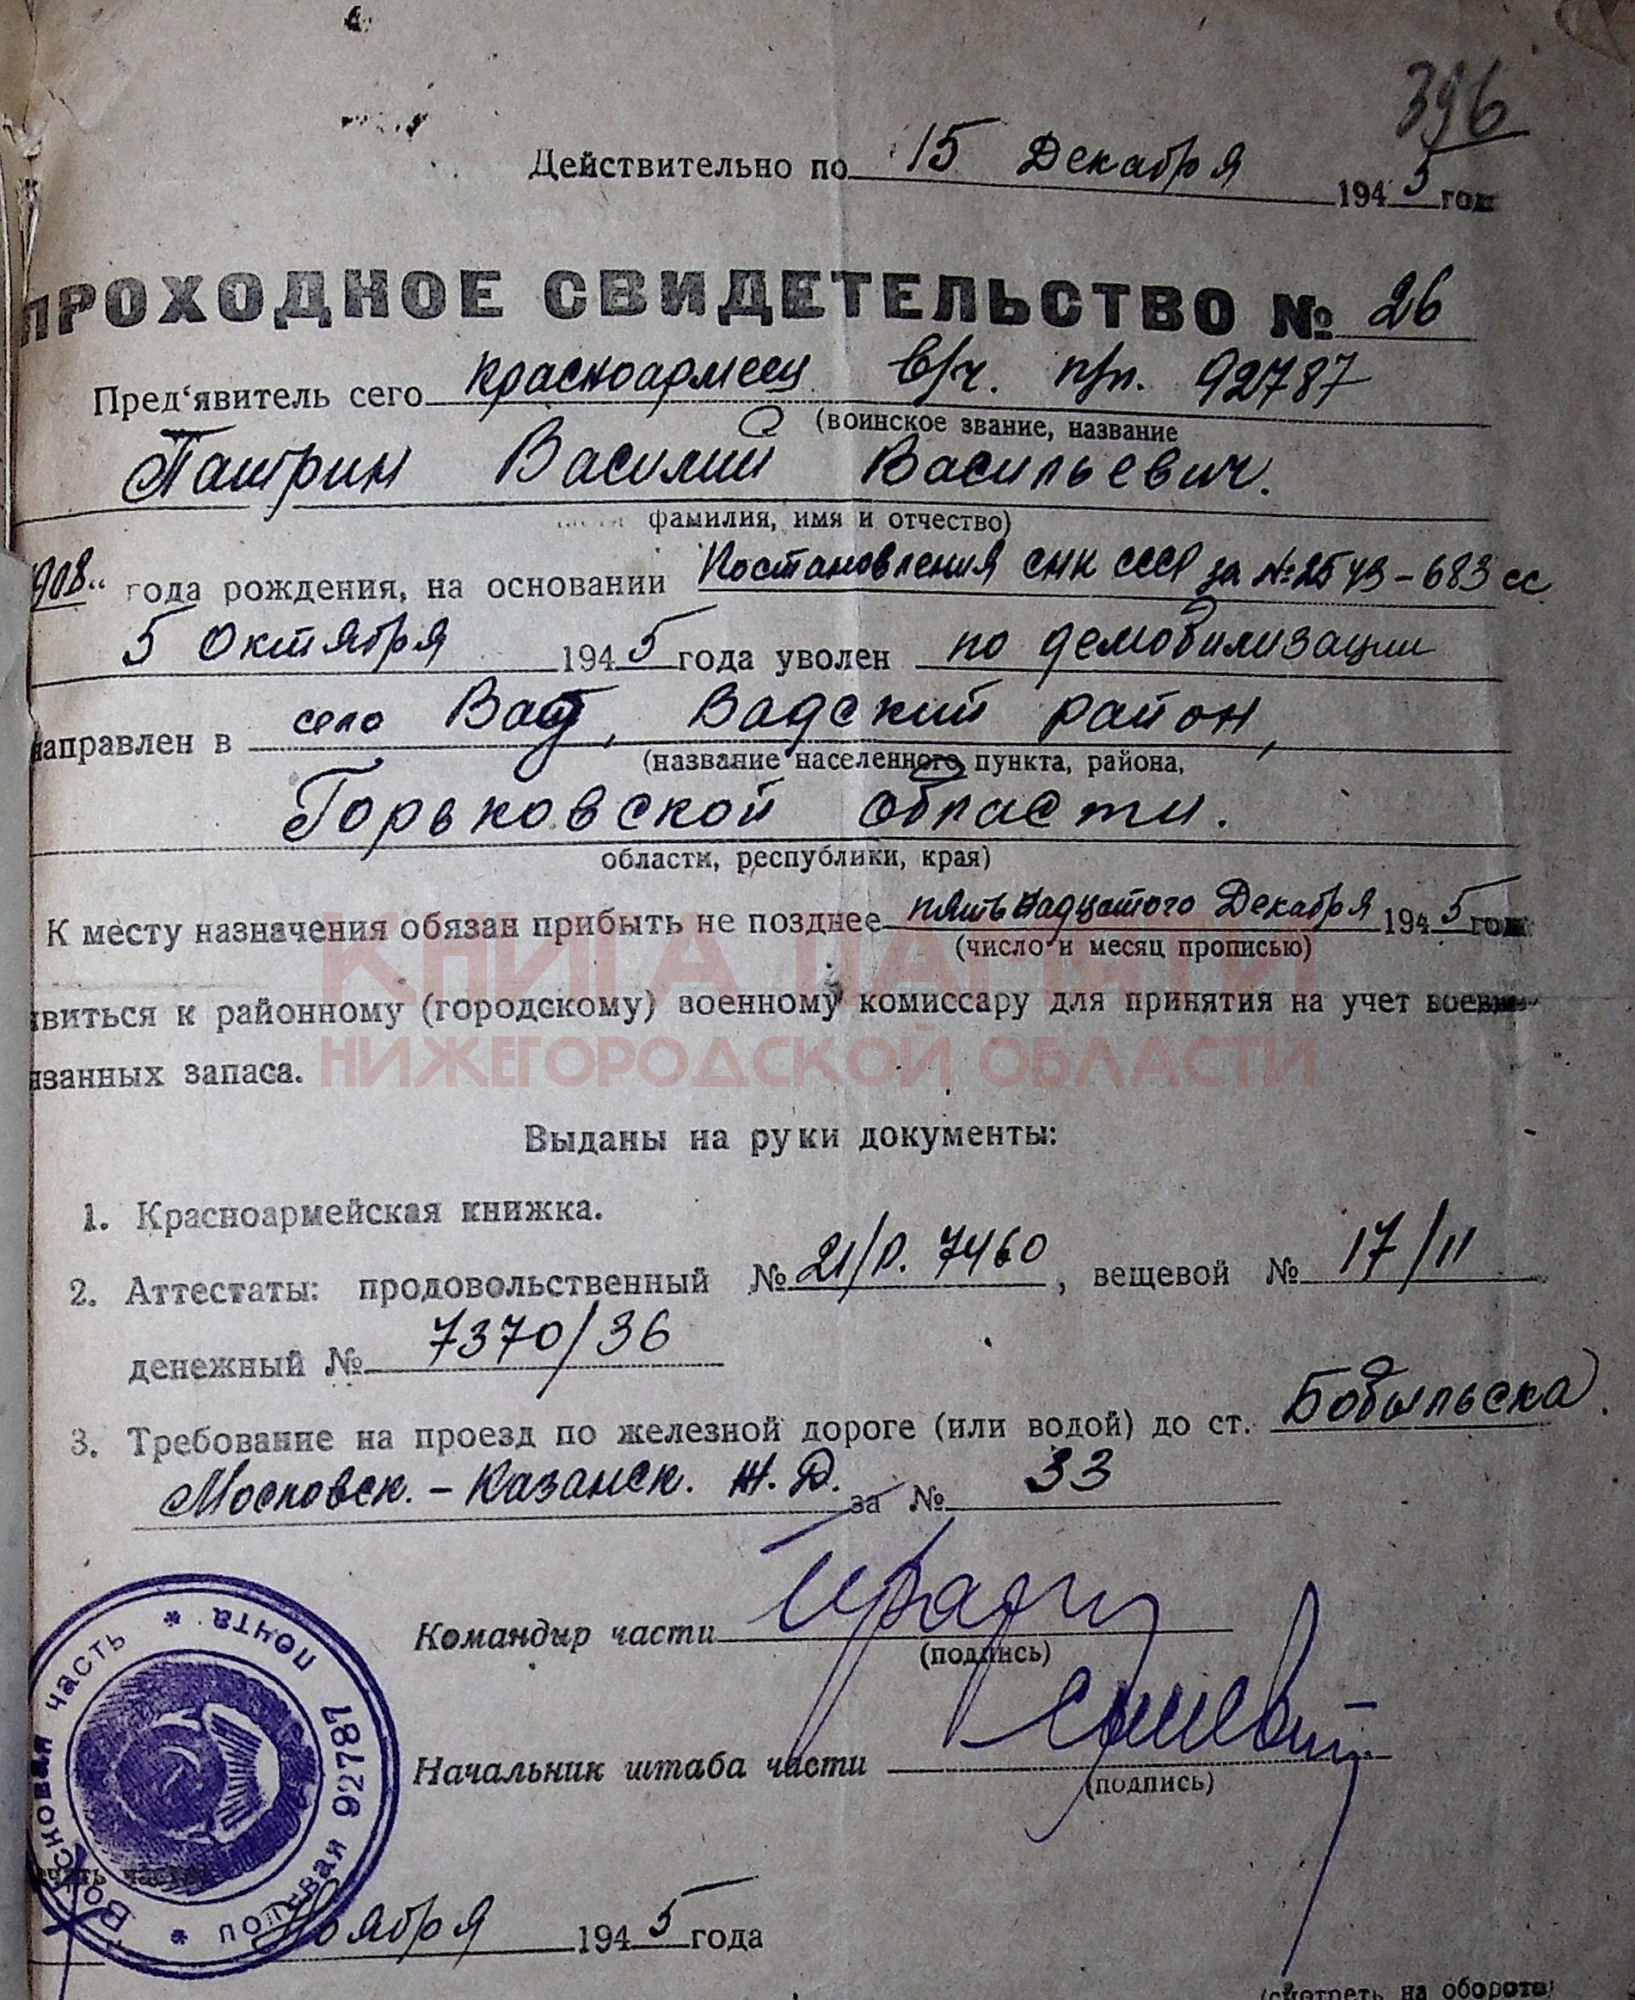 396
Действительно по 15 Декабря 1945 год
ПРОХОДНОЕ СВИДЕТЕЛЬСТВО № 26
Пред‘явитель сего красноармеец в/ч. п/п. 92787
(воинское звание, название
Патрин Василий Васильевич.
фамилия, имя и отчество)
1908.. года рождения, на основании Постановления СНК СССР за № 2543-683 сс
5 Октября 1945 года уволен по демобилизации
направлен в село Вад, Вадский район,
(название населенного пункта, района,
Горьковской области.
области, республики, края)
К месту назначения обязан прибыть не позднее пятьнадцатого Декабря 1945 год
(число и месяц прописью)
КНИГА ПАМЯТИ
явиться к районному (городскому) военному комиссару для принятия на учет военно-
НИЖЕГОРОДСКОЙ ОБЛАСТИ
язанных запаса.
Выданы на руки документы:
1. Красноармейская книжка.
2. Аттестаты: продовольственный № 21/р. 7460, вещевой № 17/11
денежный № 7370/36
3. Требование на проезд по железной дороге (или водой) до ст. Бобыльска.
Московск.-Казанск. Ж.Д. за № 33
Командир части
(подпись)
Начальник штаба части
(подпись)
Войсковая часть * полевая почта 92787 *
печать части
Ноября 1945 года
(смотреть на обороте)